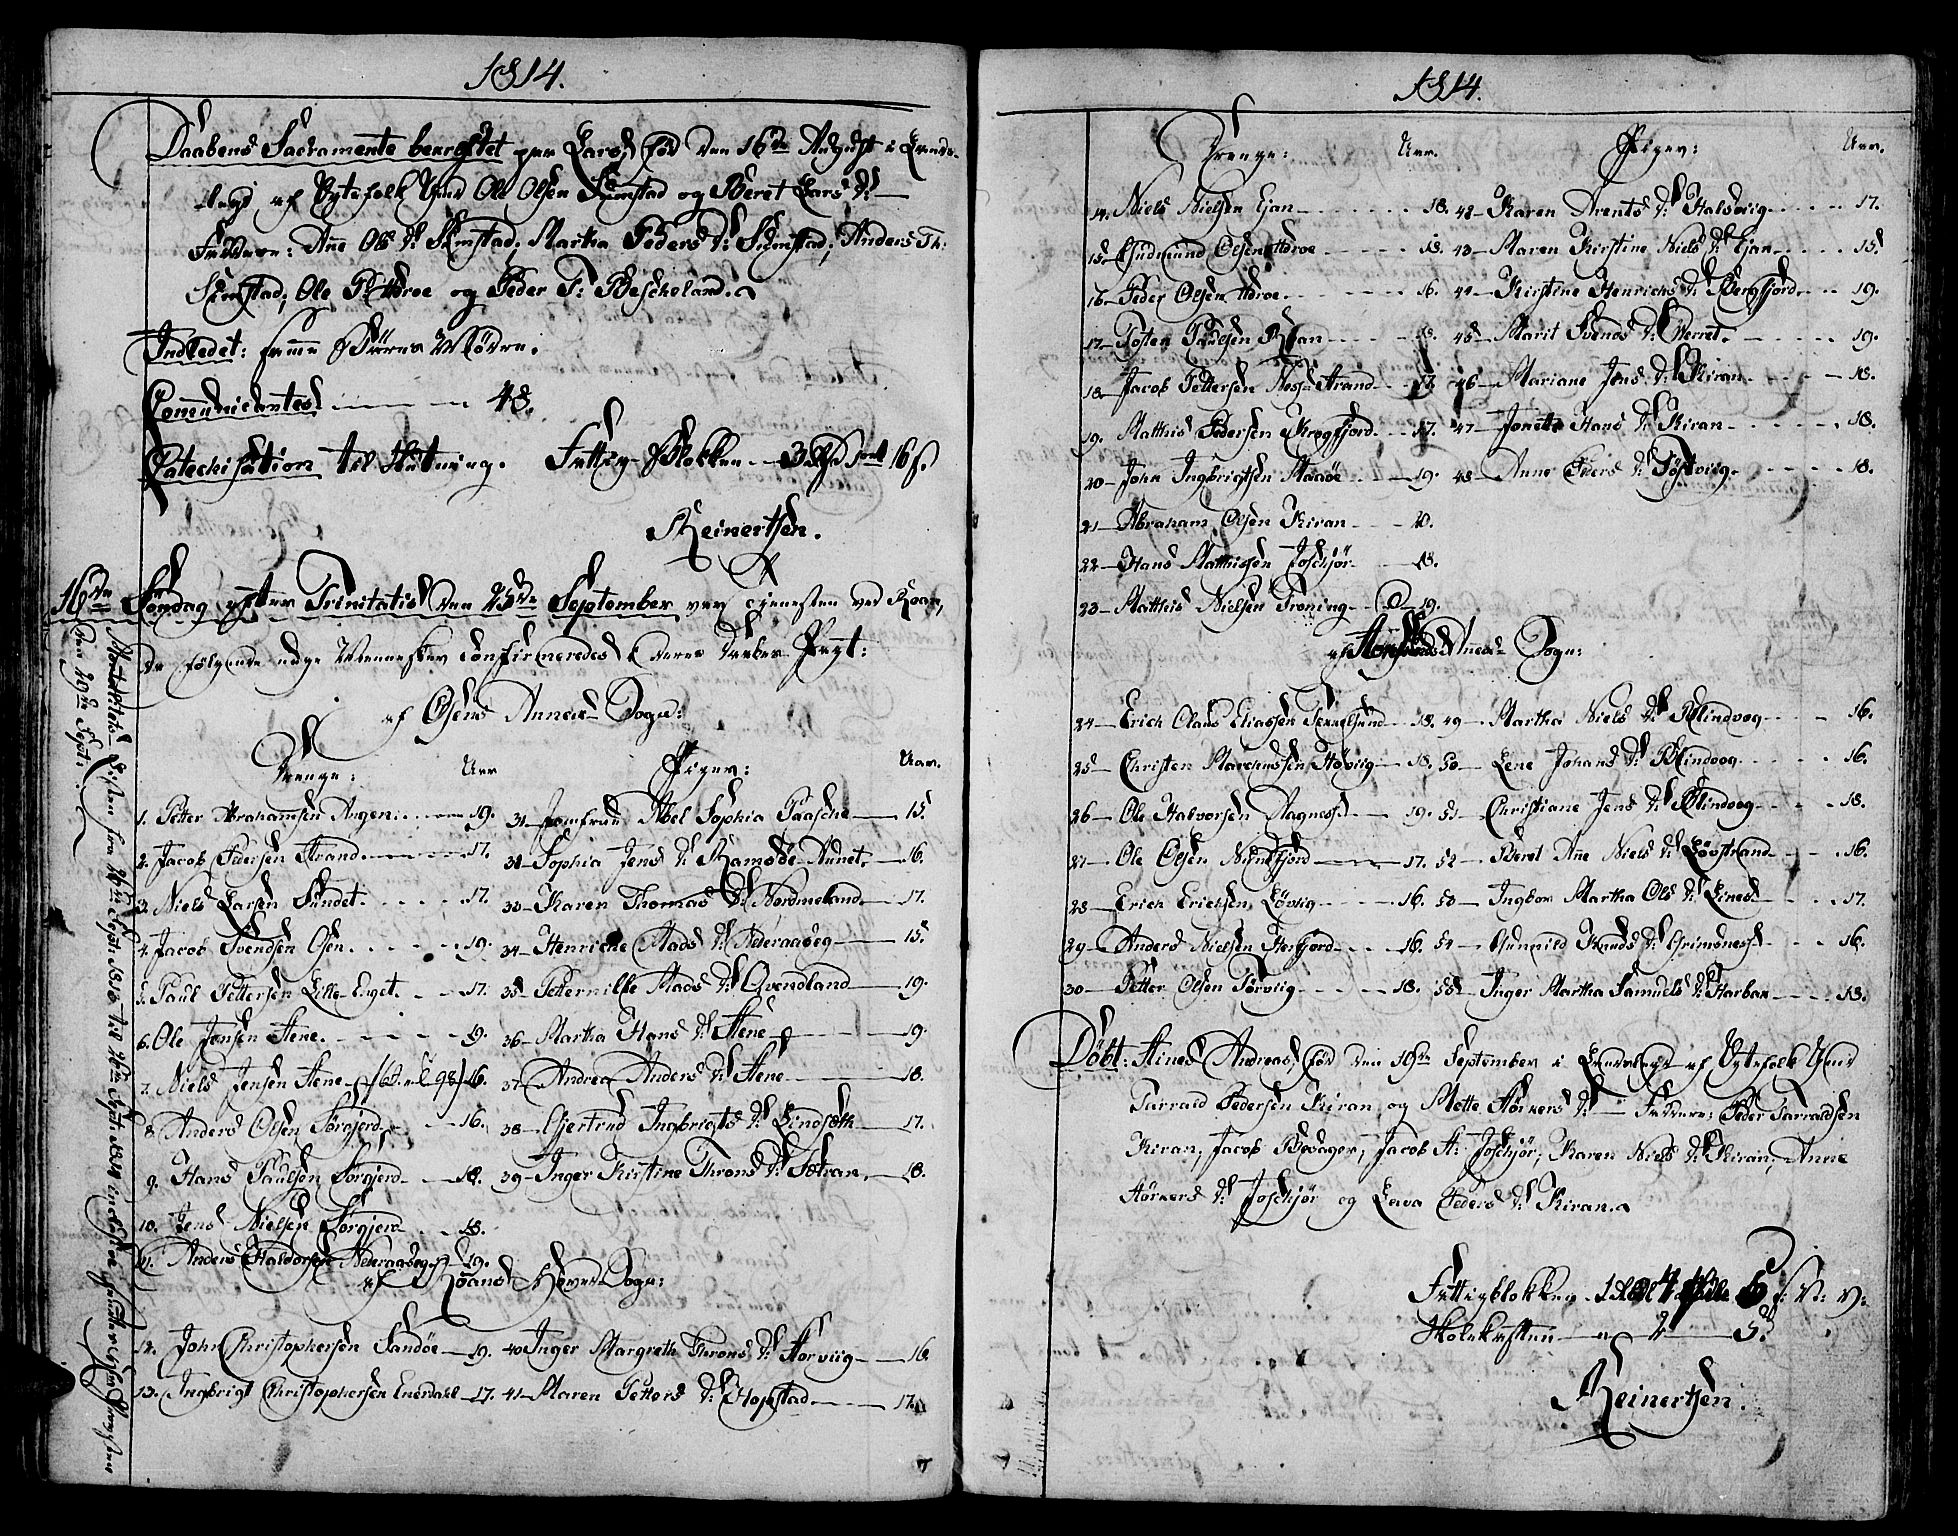 1814.
Daabens Sacramente beærgtet par Lars, fød den 16de August i
af Ægtefolk Gmd Ole Olsen Sumstad og Beret Lars D:
Faddere: Ane Ols D: Sumstad, Martha Peders D: Sumstad, Anders Th:
Sumstad, Ole P: Hdroe og Peder T: Bescheland.
Indledet: samme Børns Mødre.
Communicantes 48.
Catechisation til Slutning. Fattig-Blokken 3 16 s.
Reinertsen.
16de Søndag efter Trinitatis den 25de September var tienesten ved Roan,
da følgende unge Mennesker Confirmeredes i deres Daabes Pagt:
af Osens Annex Sogn:
Drenge: Aar Piger: Aar.
1. Petter Abrahamsen Angen 19. 31 Jomfrue Abel Sophia Paasche 15.
2. Jacob Pedersen Strand 17. 32 Sophia Jens D: Ramsöe-Aunet 16.
3. Niels Larsen Sundet 17. 33 Karen Thomas D: Nordmeland 17.
4. Jacob Svendsen Osen 19. 34 Henriche Mads D: Aderaasseg 15.
5. Paul Pettersen Lille-Enget 17. 35 Petternille Mads D: Qvendland 19.
6. Ole Jensen Stene 19. 36 Martha Hans D: Stene 19.
7. Niels Jensen Stene 16. 37 Andrea Anders D: Stene 18.
8. Anders Olsen Sørgjerd 16. 38 Gjertrud Ingbrigts D: Lindsæth 17.
9. Hans Paulsen Sørgjerd 18. 39 Inger Kirstine Throns D: Sætran 18.
10. Jens Nielsen Sørgjerd 18.
11. Anders Haldorsen Aderaasseg 19.
af Roans Hoved-Sogn:
12. John Christophersen Sandöe 19. 40 Inger Margreth Throns D: Horviig 16.
13. Ingbrigt Christophersen Enesdahl 17. 41 Maren Petters D: Hopstad 17.
Mortalitets Listen fra Sept: 1813 til Sept: 1814
den 29de Sept:
1814.
Drenge: Aar. Piger: Aar.
14. Niels Nielsen Ejan 18. 42 Karen Arents D: Halsviig 17.
15. Gudmund Olsen Hdroe 18. 43 Maren Kirstine Niels D: Ejan 15.
16 Peder Olsen Hdroe 16. 44 Kirstine Henrichs D: Bergfjord 19.
17 Tosten Paulsen Kiran 18. 45 Marit Svends D: Verret 19.
18. Jacob Pettersen Næss-Strand 17. 46 Mariane Jens D: Kiran 18.
19. Matthis Pedersen Kragfjord 17. 47 Jonette Hans D: Kiran 18.
20 John Ingbrigtsen Maaöe 19. 48 Anne Peders D: Töftviig 18.
21 Abraham Olsen Kiran 20.
22 Hans Matthissen Joschjör 18.
23 Matthis Nielsen Froning 19.
af Annex Sogn:
24 Erich Olaus Eliassen Terrelsund 18. 49 Martha Niels D: Blindvog 16.
25 Christen Marchussen Høiviig 18. 50 Lene Johans D: Blindvog 16.
26 Ole Halvorsen Ragness 19. 51 Christiane Jens D: Blindvog 18.
27 Ole Olsen Nundfjord 17. 52 Beret Ane Niels D: Løvstrand 16.
28 Erich Erichsen Løvlig 16. 53 Ingbor Martha Ols D: Lines 17.
29 Anders Nielsen Herfjord 16. 54 Gunnild Knuds D: Grimsness 16.
30 Petter Olsen Tørviig 18. 55 Inger Martha Samuels D: Harbak 18.
Døbt: Stines Andreas, fød den 19de September i af Ægtefolk Gmd
Tarrald Pedersen Kiran og Mette Størkers D: Faddere: Peder Tarraldsen
Kiran, Jacob Bessager, Jacob A: Joschjör, Karen Niels D: Kiran, Anne
Størkers D: Joschjör og Lava Peders D: Kiran.
Fattigblokken 1 4 6 s:
Skolekassen 2 5.
Reinertsen.